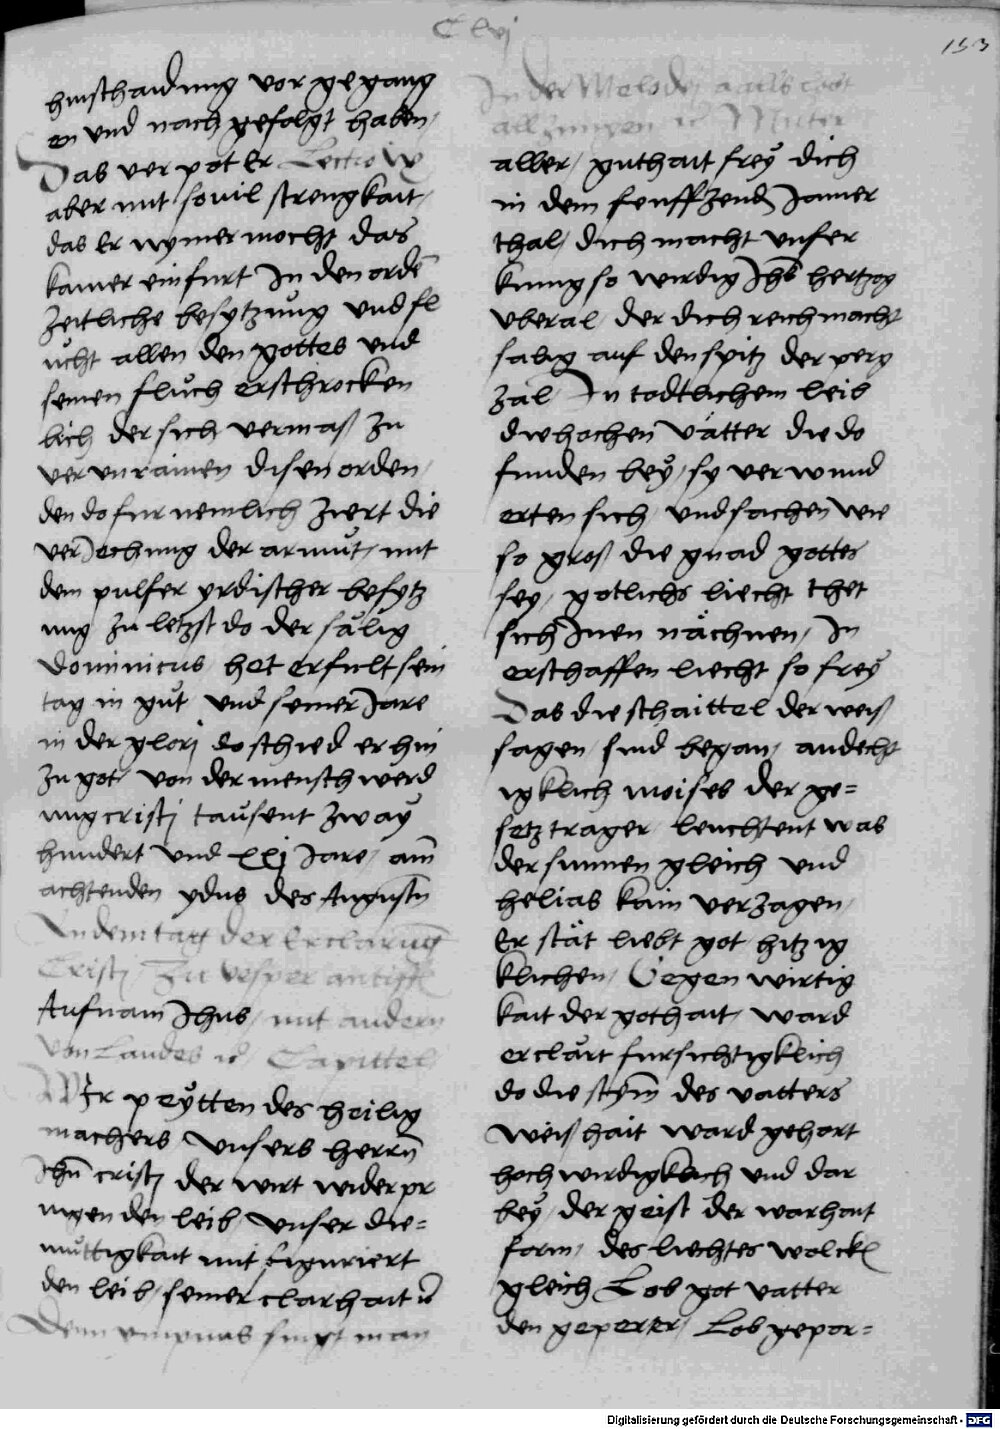 Clvj
153
hinschaidung vor gegang
en und nach gefolgt haben
Das verpot Er Lectio iv
aber mit sovil strengkait
das Er nymer mocht das
kainer einfurt In den ordē
zeitliche besytzung und fl
ucht allen den gottes und
seinen fluch erschrocken
lich der sich vermaß zu
verunrainen disen orden
den do furnemlich ziert die
verJechung der armut, mit
dem pulfer yrdischer besytz
ung zu letzst do der sälig
dominicus het erfult sein
tag in gut und seiner Jare
in der glorj do schied er hin
zu got von der menschwerd
ung cristj tausent zway
hundert und xxj Jare, am
achtenden ydus des Augustn
An dem tag der Erclarung
Cristj Zu vesper antiffn
Aufnam Jhus, mit andern
von Laudes ic Capittel
Wir peytten des heilig
machers unsers herrn
Jhū cristj der wirt widerpr
ingen den leib, unser die=
muttigkait mit figuriert
den leib seiner clarhait ic
Denn ympnus singt man
In der Melodej
all zungen ic Muter
aller, guthait frey dich
in dem seuffzend Jamer
thal, dich macht unser
kunig so wirdig Jhs hertzog
uberal, der dich reich macht
salig auf den spitz der perg
zal, In todtlichem leib
die hochen vätter die do
funden bey, sy verwund
erten sich, und sachen wie
so groß die gnad gottes
sey, gotlichs liecht thet
sich Inen nächnen, In
erschaffen liecht so frey
Das die schaittel der weiß
sagen, sind began, andecht
igklich moises der ge=
setz trager, leuchtent was
der sunnen gleich und
helias kain verzagen,
Er stät liebt got hitzig
klichen, Gegen wirtig
kait der gothait, ward
erclärt fursichtigklich
do die stym des vatters
weißhait ward gehort
hochwirdigklich und dar
bey, der geist der warhait
form, des liechtes wolckn
gleich Lob got vatter
den geperer, Lob gepor=
Digitalisierung gefördert durch die Deutsche Forschungsgemeinschaft - DFG